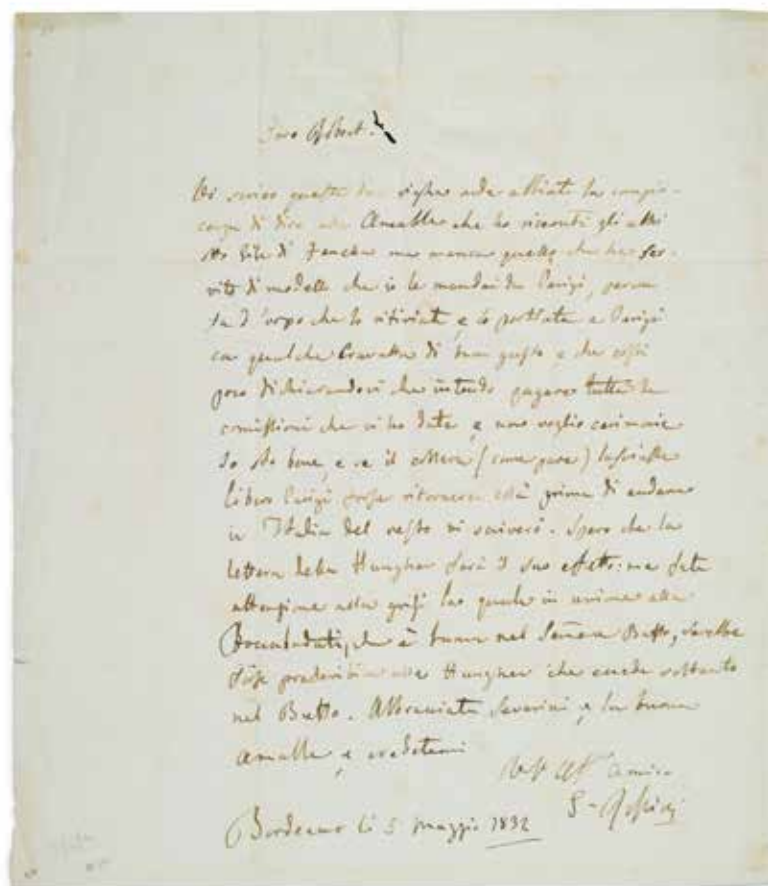 Caro
Vi scrivo queste due righe onde abbiate la compia-
cenza di dire che ho ricevuti gli abiti
ma manca quello che ha ser-
vito di modello che io le mandai da Parigi,
d'uopo che lo ritiriate, e lo portiate a Parigi
con qualche Cravatta di buon gusto, e che costi
poco dichiarandovi che intendo pagare tutte le
commissioni che vi ho date, e non voglio cerimonie
Io sto bene, e se il collera (come pare) lasciasse
libero Parigi forse ritornerei costà prima di andare
in Italia del resto vi scriverò. Spero che la
lettera della Hungher farà il suo effetto: ma fate
attenzione alla grisi la quale in unione alla
Boccabadati, che è buona nel Buffo, sarebbe
forse alla Hungher che anche soltanto
nel Buffo. Abbracciate Severini, e la buona
, e credetemi
amico
G. Rossini
Bordeaux li 5 Maggio 1832